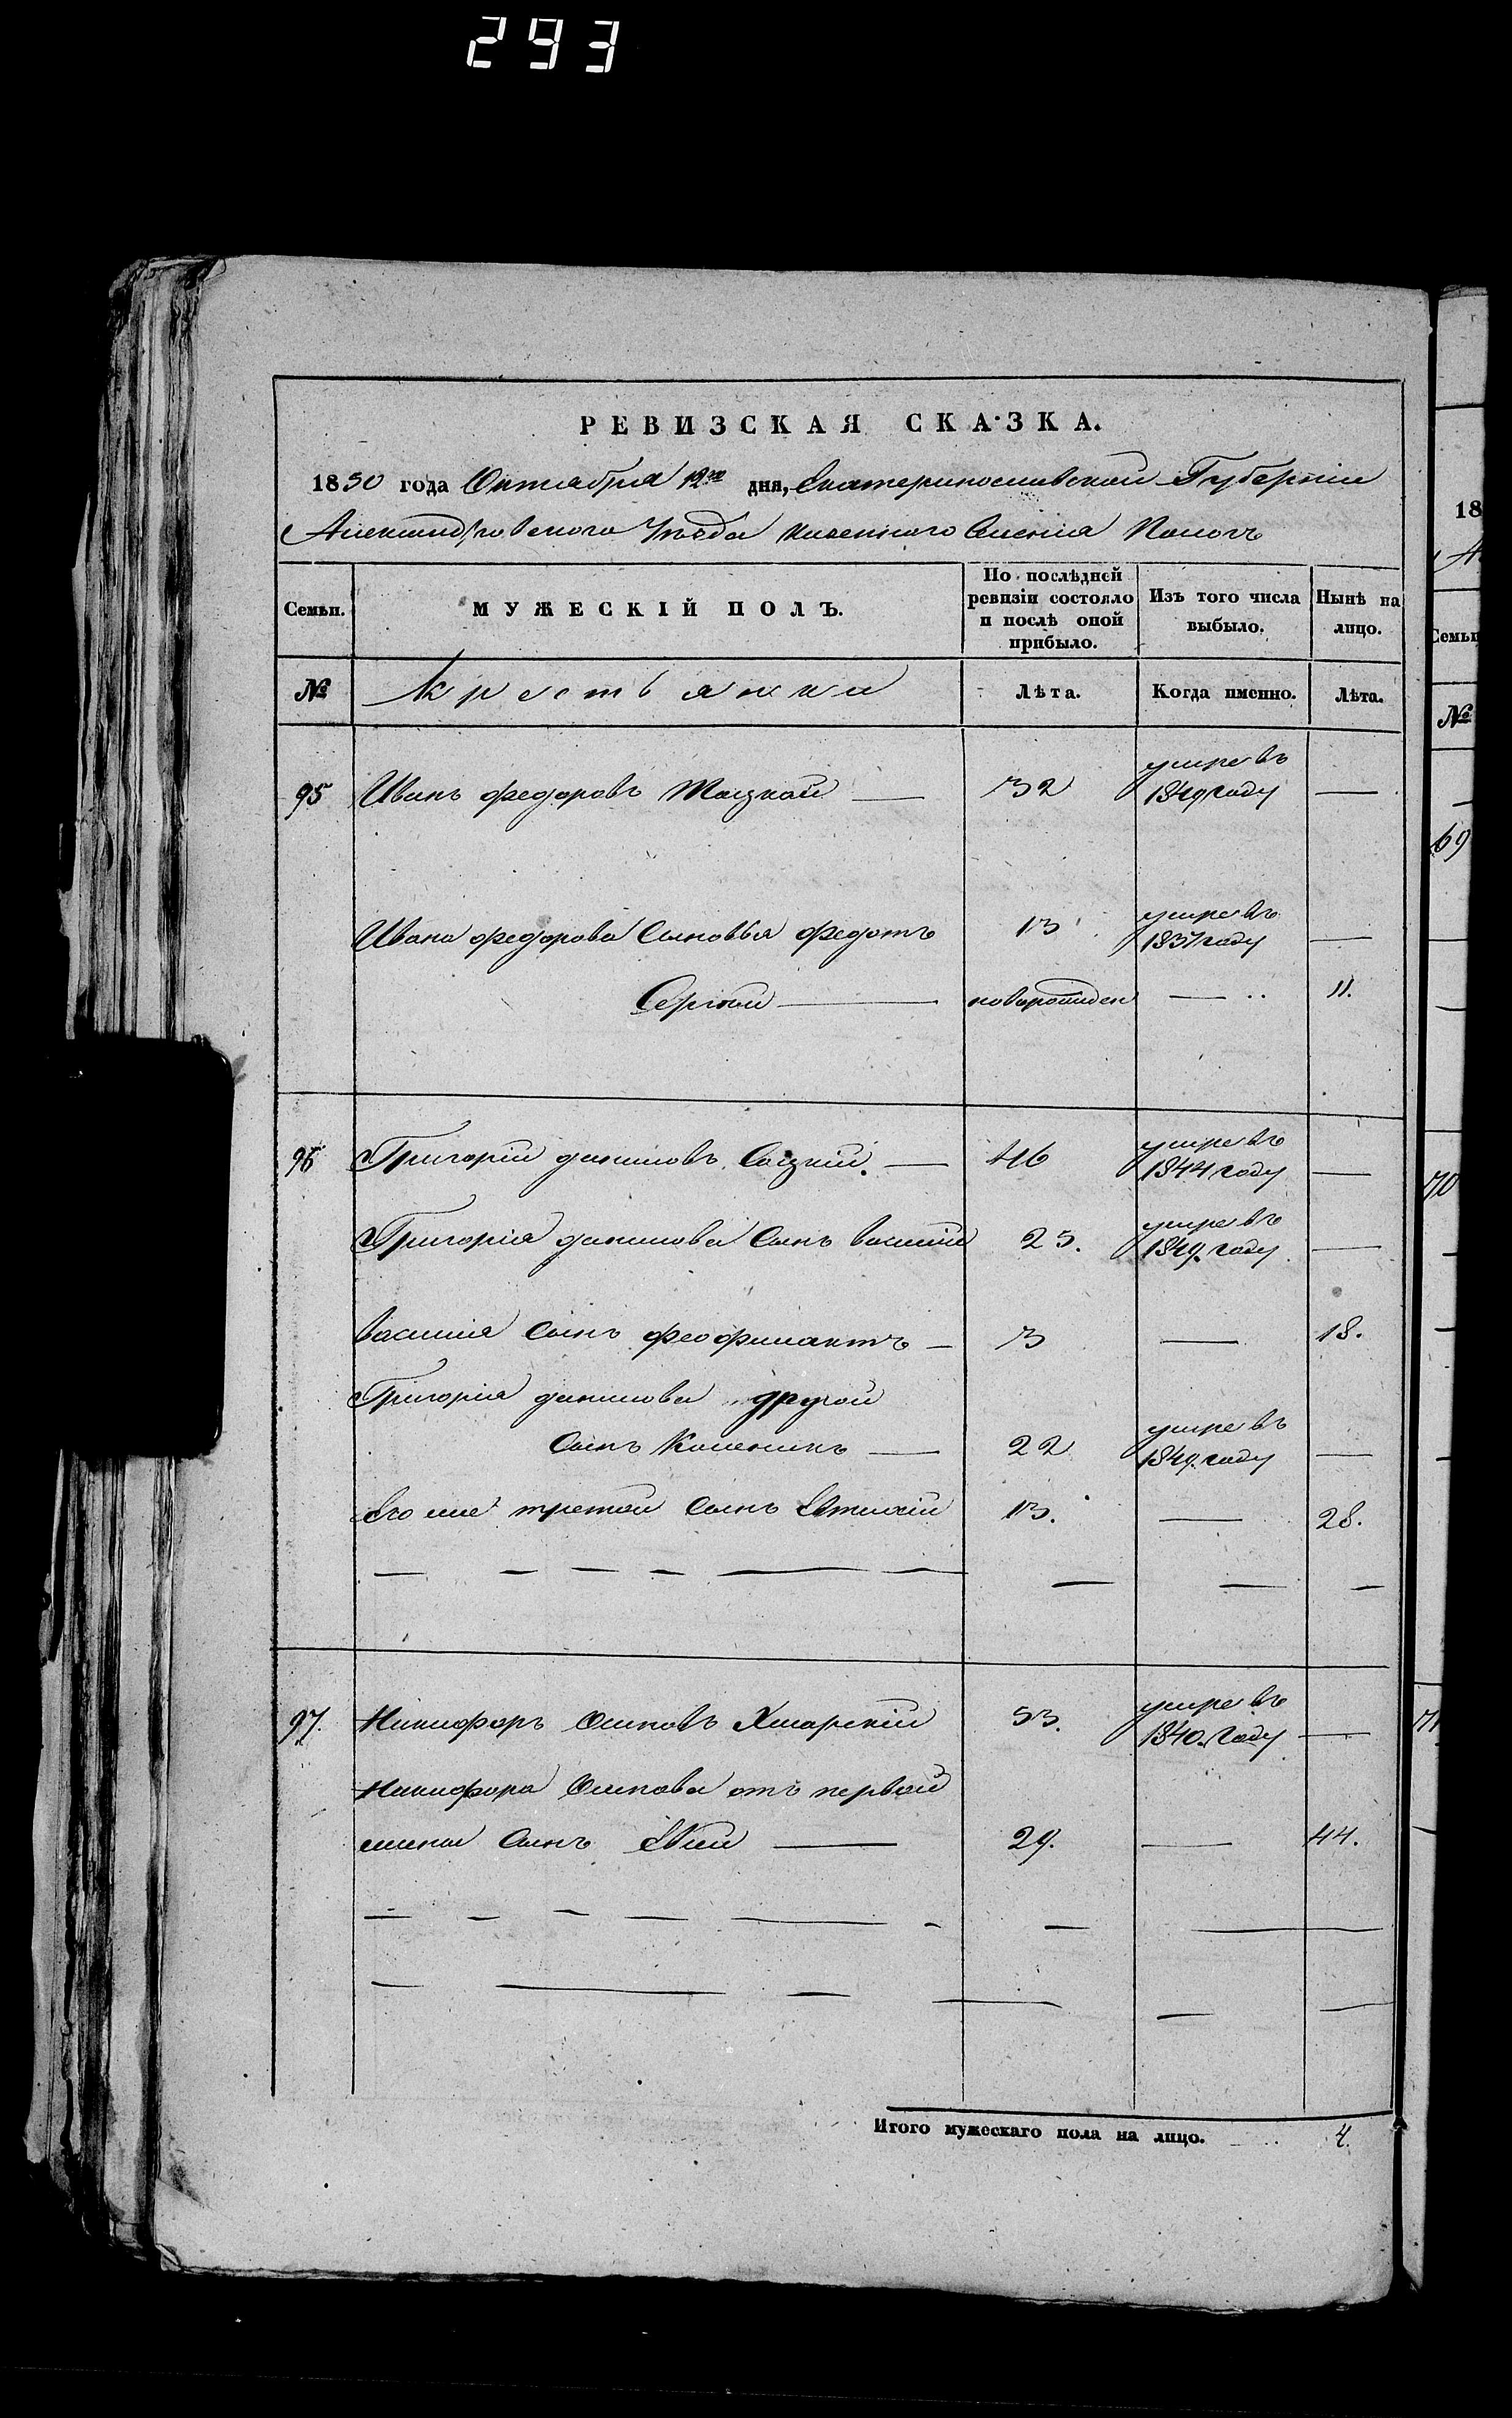 293
РЕВИЗСКАЯ СКАЗКА.
1850 года Октября 12го дня, Екатеринославской Губерніи
Александровского Уѣзда казенного Селенія Пологъ
Семьи. МУЖЕСКІЙ ПОЛЪ. По послѣдней ревизіи состояло и послѣ оной прибыло. Изъ того числа выбыло. Нынѣ на лицо.
№ Крестьянки Лѣта. Когда именно. Лѣта.
95 Иванъ федоровъ 32 умре въ 1849 году —
Ивана федорова Сыновья федотъ 13 умре въ 1837 году —
Сергѣй — новорожден — 11.
96 Григорій даниловъ Сацкій. — 46 умре въ 1844 году —
Григорія данилова Сынъ василій 25. умре въ 1849. году —
василія Сынъ феофилактъ — 3 — 18.
Григорія данилова другой
Сынъ Каленикъ — 22 умре въ 1849. году —
Его же третой Сынъ Евтихій 13. — 28.
97. Никифоръ Осиповъ Хмарскій 53. умре въ 1840. Году —
Никифора Осипова отъ первой
жены Сынъ — 29. — 44.
Итого мужескаго пола на лицо. 4.
18
Семьи
№
69
70
71